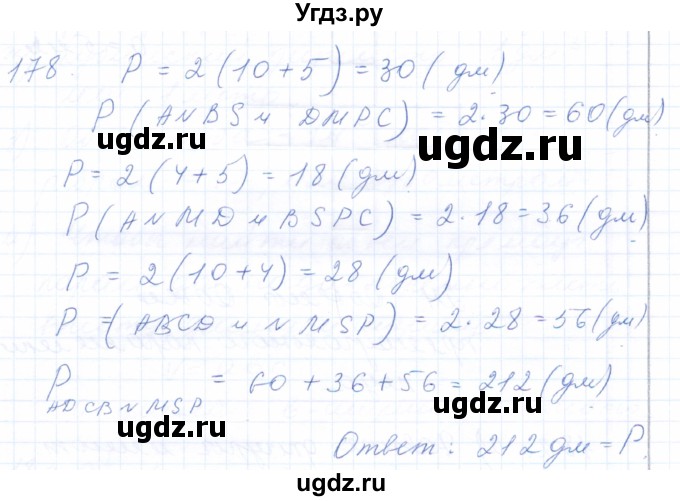 Угдз.ру
178. P = 2(10+5) = 30 (дм)
P (ANBS и DMPC) = 2·30 = 60 (дм)
ugdz.ru ugdz.ru
P = 2(4+5) = 18 (дм)
P (ANMD и BSPC) = 2·18 = 36 (дм)
ugdz.ru ugdz.ru
P = 2(10+4) = 28 (дм)
P =(ABCD и NMSP) = 2·28 = 56 (дм)
ugdz.ru ugdz.ru
P ADCBNMSP = 60 + 36 + 56 = 212 (дм)
ugdz.ru ugdz.ru
Ответ: 212 дм = P.